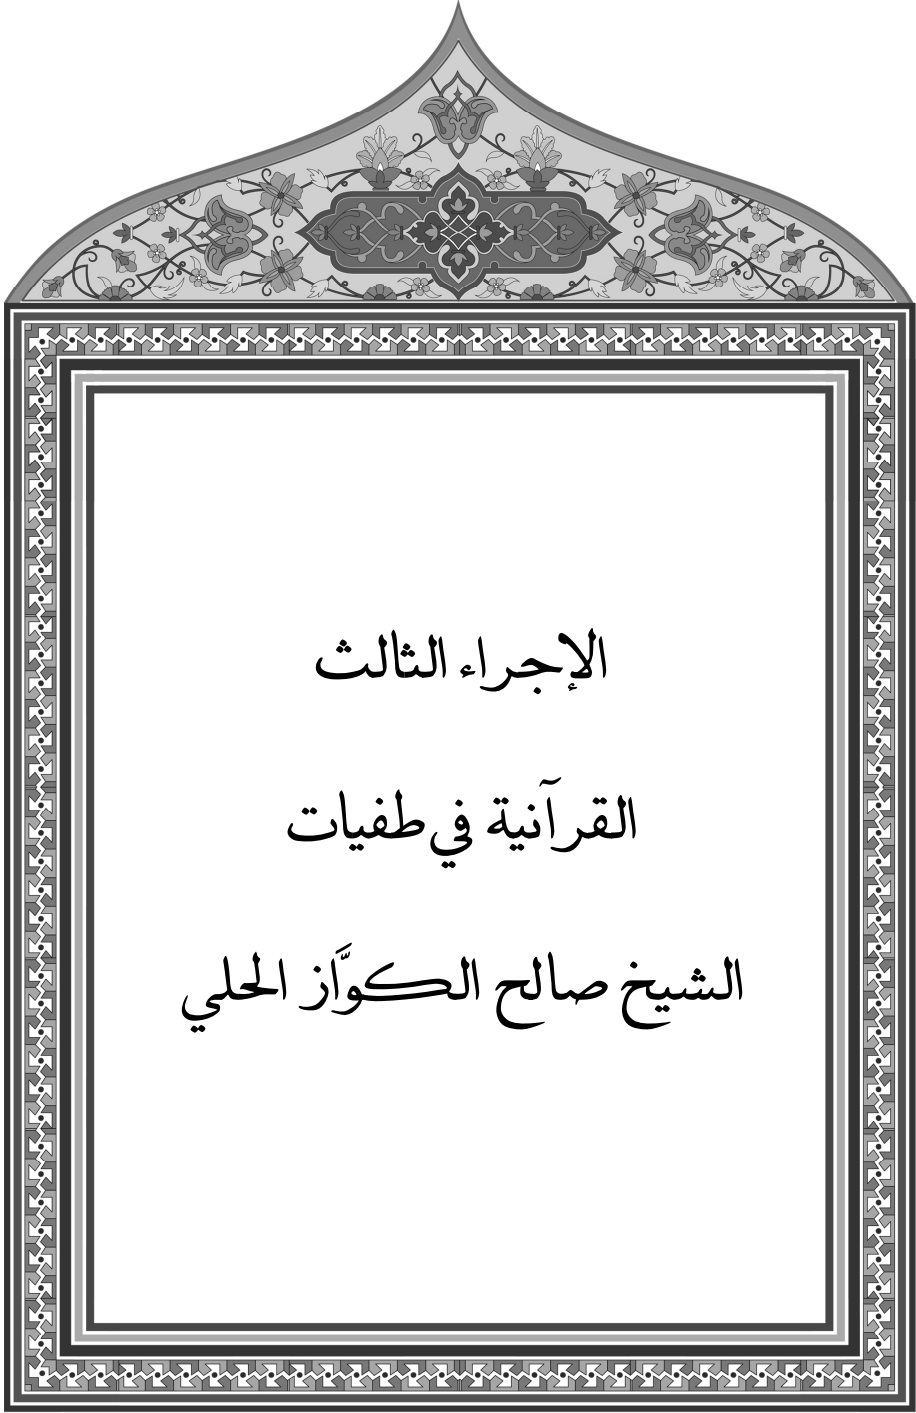 الإجراء الثالث
القرآنية في طفيات
الشيخ صالح الكوَّاز الحلي